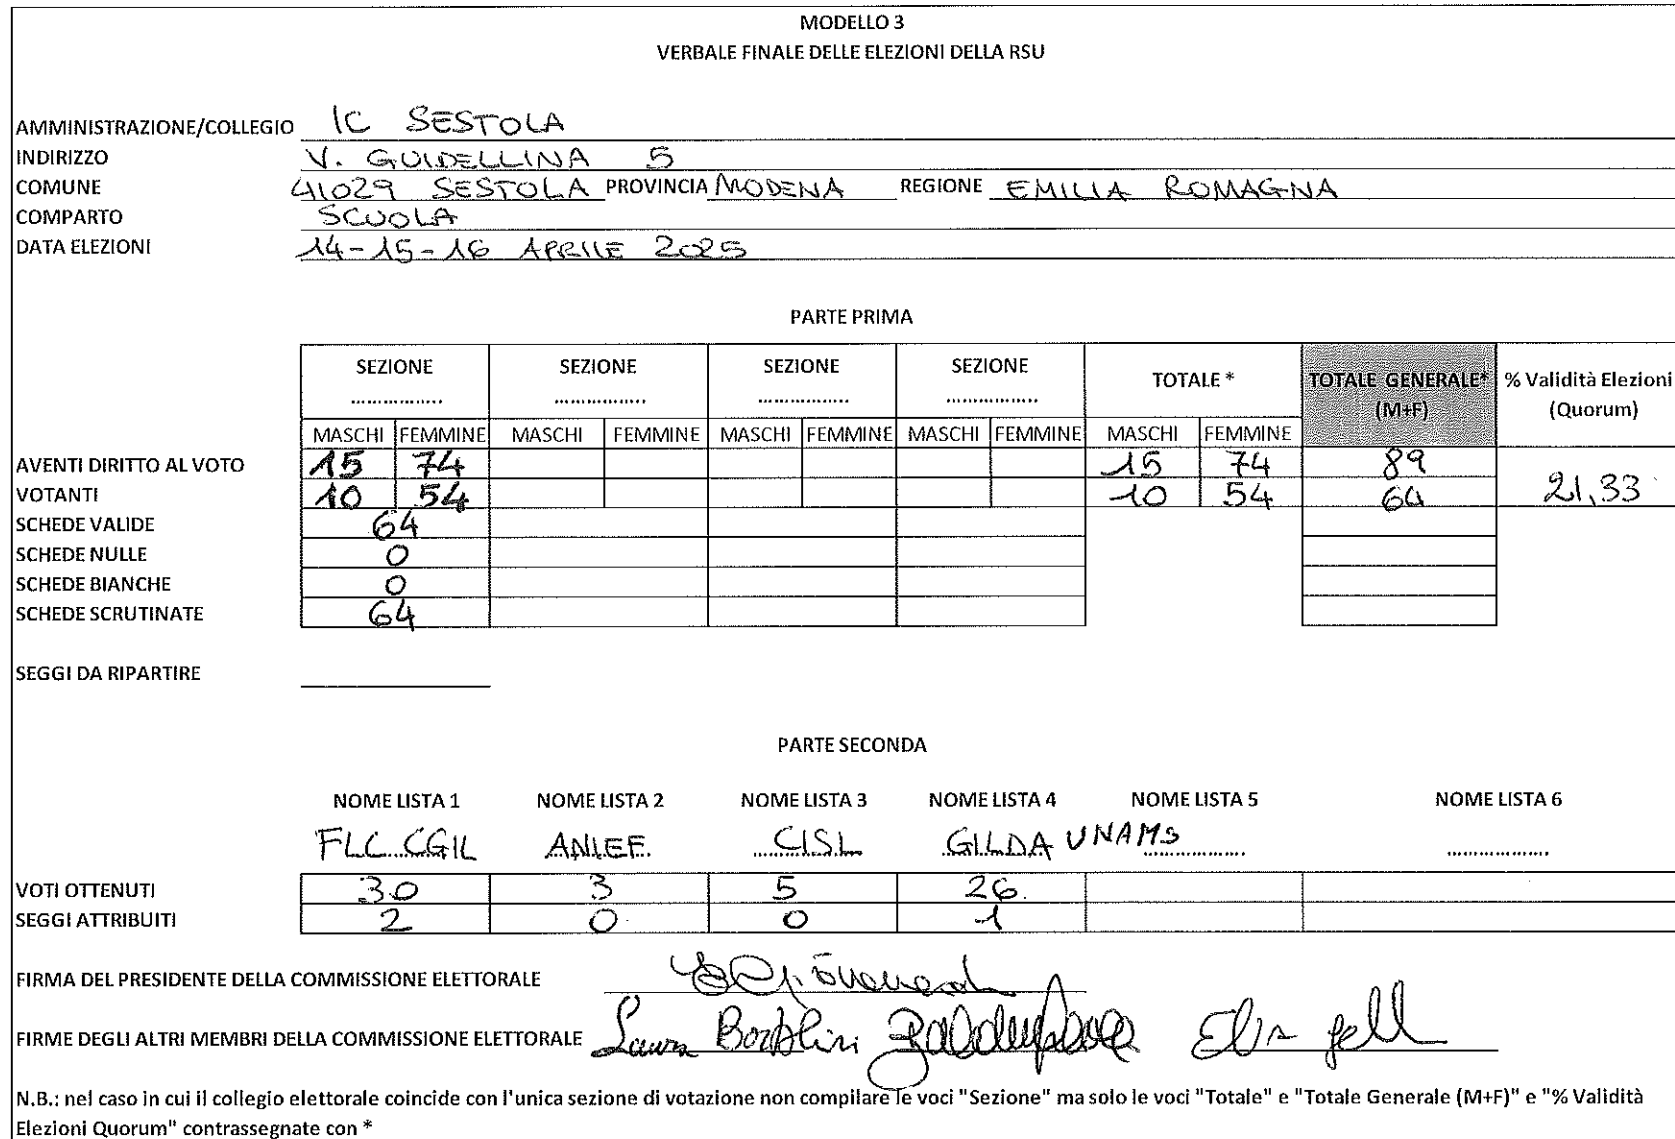 MODELLO 3
VERBALE FINALE DELLE ELEZIONI DELLA RSU
AMMINISTRAZIONE/COLLEGIO IC SESTOLA
INDIRIZZO V. GUIDELLINA 5
COMUNE 41029 SESTOLA PROVINCIA MODENA REGIONE EMILIA ROMAGNA
COMPARTO SCUOLA
DATA ELEZIONI 14-15-16 APRILE 2025
PARTE PRIMA
SEZIONE SEZIONE SEZIONE SEZIONE TOTALE * TOTALE GENERALE* (M+F) % Validità Elezioni (Quorum)
................ ................ ................ ................
MASCHI FEMMINE MASCHI FEMMINE MASCHI FEMMINE MASCHI FEMMINE MASCHI FEMMINE
AVENTI DIRITTO AL VOTO 15 74 15 74 89
VOTANTI 10 54 10 54 64 21,33
SCHEDE VALIDE 64
SCHEDE NULLE 0
SCHEDE BIANCHE 0
SCHEDE SCRUTINATE 64
SEGGI DA RIPARTIRE
PARTE SECONDA
NOME LISTA 1 NOME LISTA 2 NOME LISTA 3 NOME LISTA 4 NOME LISTA 5 NOME LISTA 6
FLC CGIL ANIEF CISL GILDA UNAMS
VOTI OTTENUTI 30 3 5 26
SEGGI ATTRIBUITI 2 0 0 1
FIRMA DEL PRESIDENTE DELLA COMMISSIONE ELETTORALE
FIRME DEGLI ALTRI MEMBRI DELLA COMMISSIONE ELETTORALE Laura Bortolini
N.B.: nel caso in cui il collegio elettorale coincide con l'unica sezione di votazione non compilare le voci "Sezione" ma solo le voci "Totale" e "Totale Generale (M+F)" e "% Validità
Elezioni Quorum" contrassegnate con *